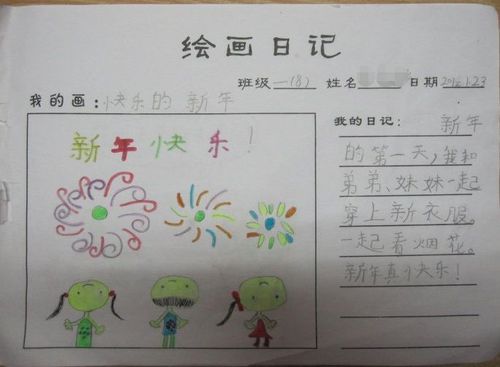 绘画日记
班级 一(8) 姓名 日期 2012.1.23
我的画：快乐的新年
新年快乐！
我的日记： 新年
的第一天，我和
弟弟、妹妹一起
穿上新衣服。
一起看烟花。
新年真快乐！